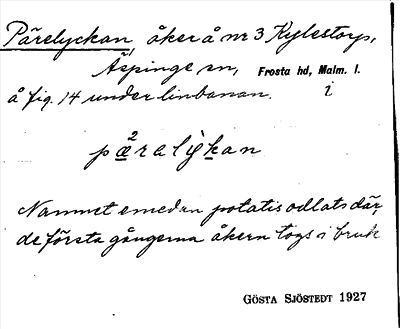 Pärelyckan, åker å nr 3 Kylestorp,
Äspinge sn, Frosta hd, Malm. l.
å fig. 14 under linbanan. i
pæ²ralỳkan
Namnet emedan potatis odlats där,
de första gångerna åkern togs i bruk
GÖSTA SJÖSTEDT 1927